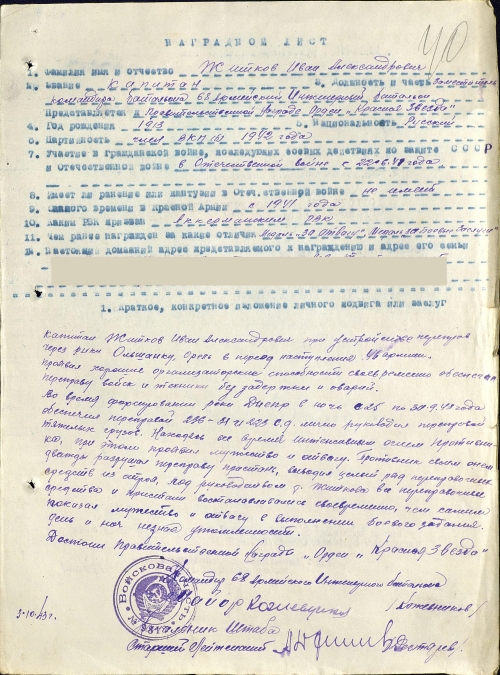 40
НАГРАДНОЙ ЛИСТ
1. Фамилия имя и отчество Житков Иван Александрович
2. Звание Капитан 3. Должность и часть Заместитель
командира батальона 68 Армейский Инженерный батальон
Представляется к Правительственной награде Орден "Красная Звезда"
4. Год рождения 1913 5. Национальность Русский
6. Партийность член ВКП(б) 1942 года
7. Участие в гражданской войне, последующих боевых действиях по защите СССР
и Отечественной войне в Отечественной войне с 22.6.41 года
8. Имеет ли ранение или контузии в Отечественной войне не имеет
9. С какого времени в Красной Армии с 1941 года
10. Каким РВК призван РВК
11. Чем ранее награжден за какие отличия Медаль "За отвагу" Медаль "За боевые заслуги"
12. Постоянный домашний адрес представляемого к награждению и адрес его семьи
1. Краткое, конкретное изложение личного подвига или заслуг
капитан Житков Иван Александрович при устройстве переправ
через реки Ольшанку, Орель в период наступления
проявил хорошие организаторские способности своевременно обеспечил
переправу войск и техники без задержки и аварий.
Во время форсирования реки Днепр в ночь с 25 по 30.9.43 года
обеспечил переправой 236 - и 223 С.Д. лично руководил переправой
тяжелых грузов. Находясь все время интенсивным огнем противни-
ка, при этом проявил мужество и отвагу. Противник своим огнем
дважды разрушал переправу пристань, выводил целый ряд переправочных
средств из строя, под руководством т. Житкова все переправочные
средства и пристани востанавливались своевременно, чем самым
показал мужество и отвагу в выполнении боевого задания
день и ночь не зная утомленности.
Достоин Правительственной награды "Орден "Красная Звезда"
Командир 68 Армейского Инженерного батальона
Майор /Кожевников/
Войсковая часть
Начальник Штаба
3.10.43 г.
Старший Лейтенант